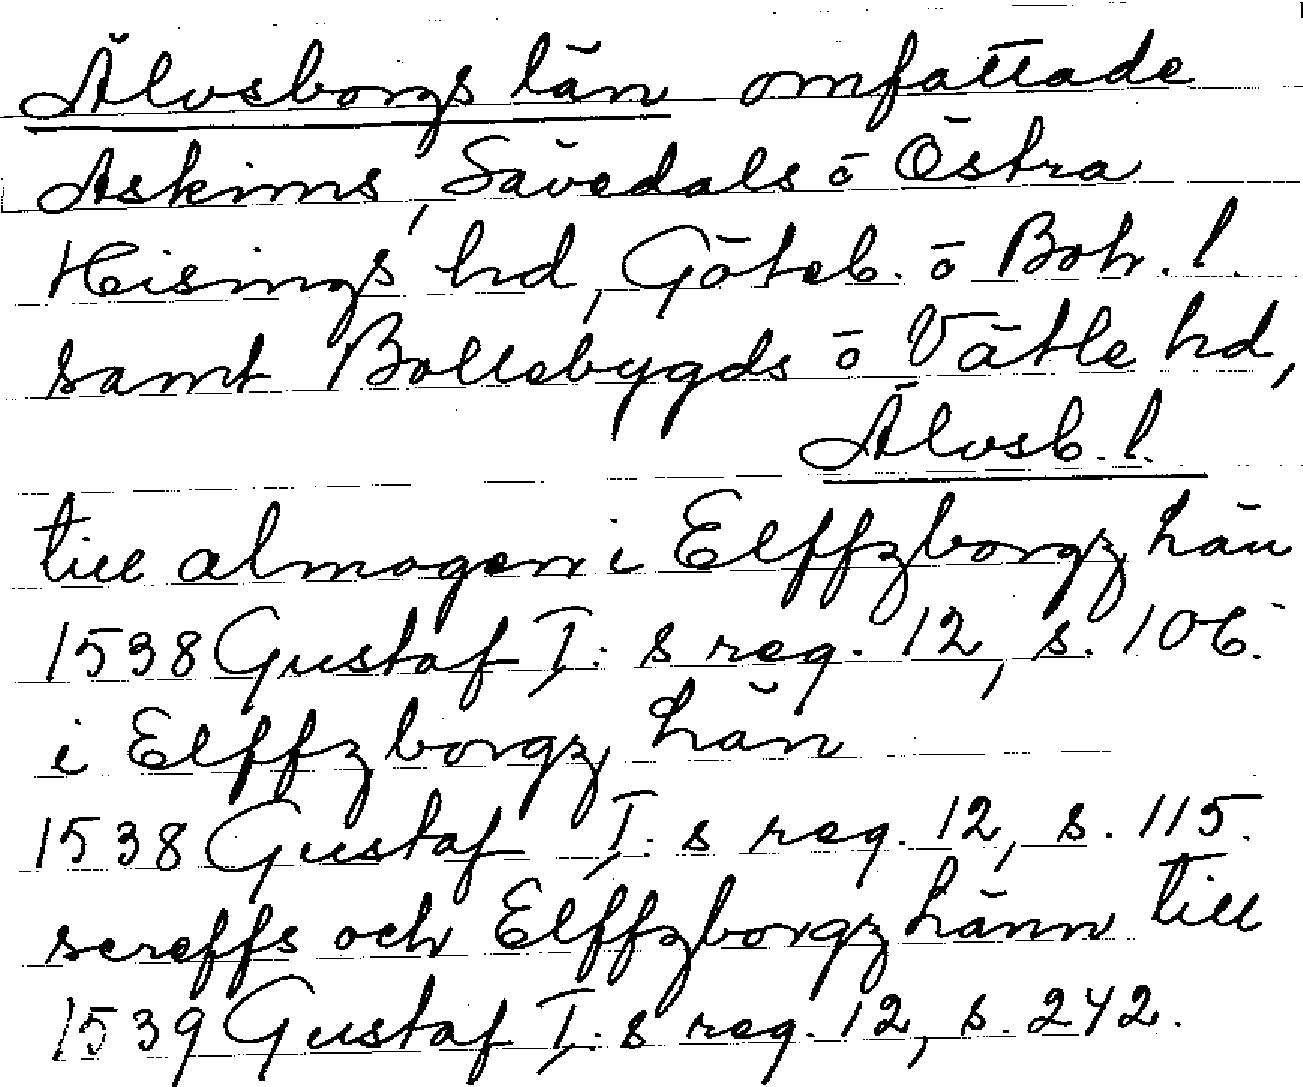 Älvsborgs län omfattade
Askims, Sävedals o Östra
Hisings hd, Göteb. o Boh. l.
samt Bollebygds o Vättle hd,
Älvsb. l.
till almogen i Elffzborgz län
1538 Gustaf I:s reg. 12, s. 106.
i Elffzborgz län
1538 Gustaf I:s reg. 12, s. 115.
screffs och Elffzborgz länn till
1539 Gustaf I:s reg. 12, s. 242.